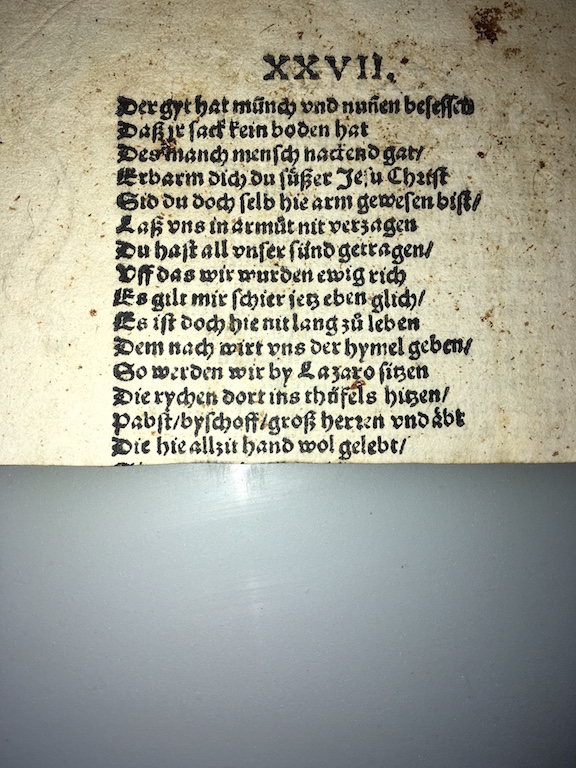 XXVII.
Der gyt hat münch vnd nuñen besessen
Daß jr sack kein boden hat
Des manch mensch nackend gat/
Erbarm dich du süßer Jesu Christ
Sid du doch selb hie arm gewesen bist/
Laß vns in armůt nit verzagen
Du hast all vnser sünd getragen/
Vff das wir wurden ewig rich
Es gilt mir schier jetz eben glich/
Es ist doch hie nit lang zů leben
Dem nach wirt vns der hymel geben/
So werden wir by Lazaro sitzen
Die rychen dort ins thüfels hitzen/
Pabst/byschoff/groß herren vnd äbt
Die hie allzit hand wol gelebt/